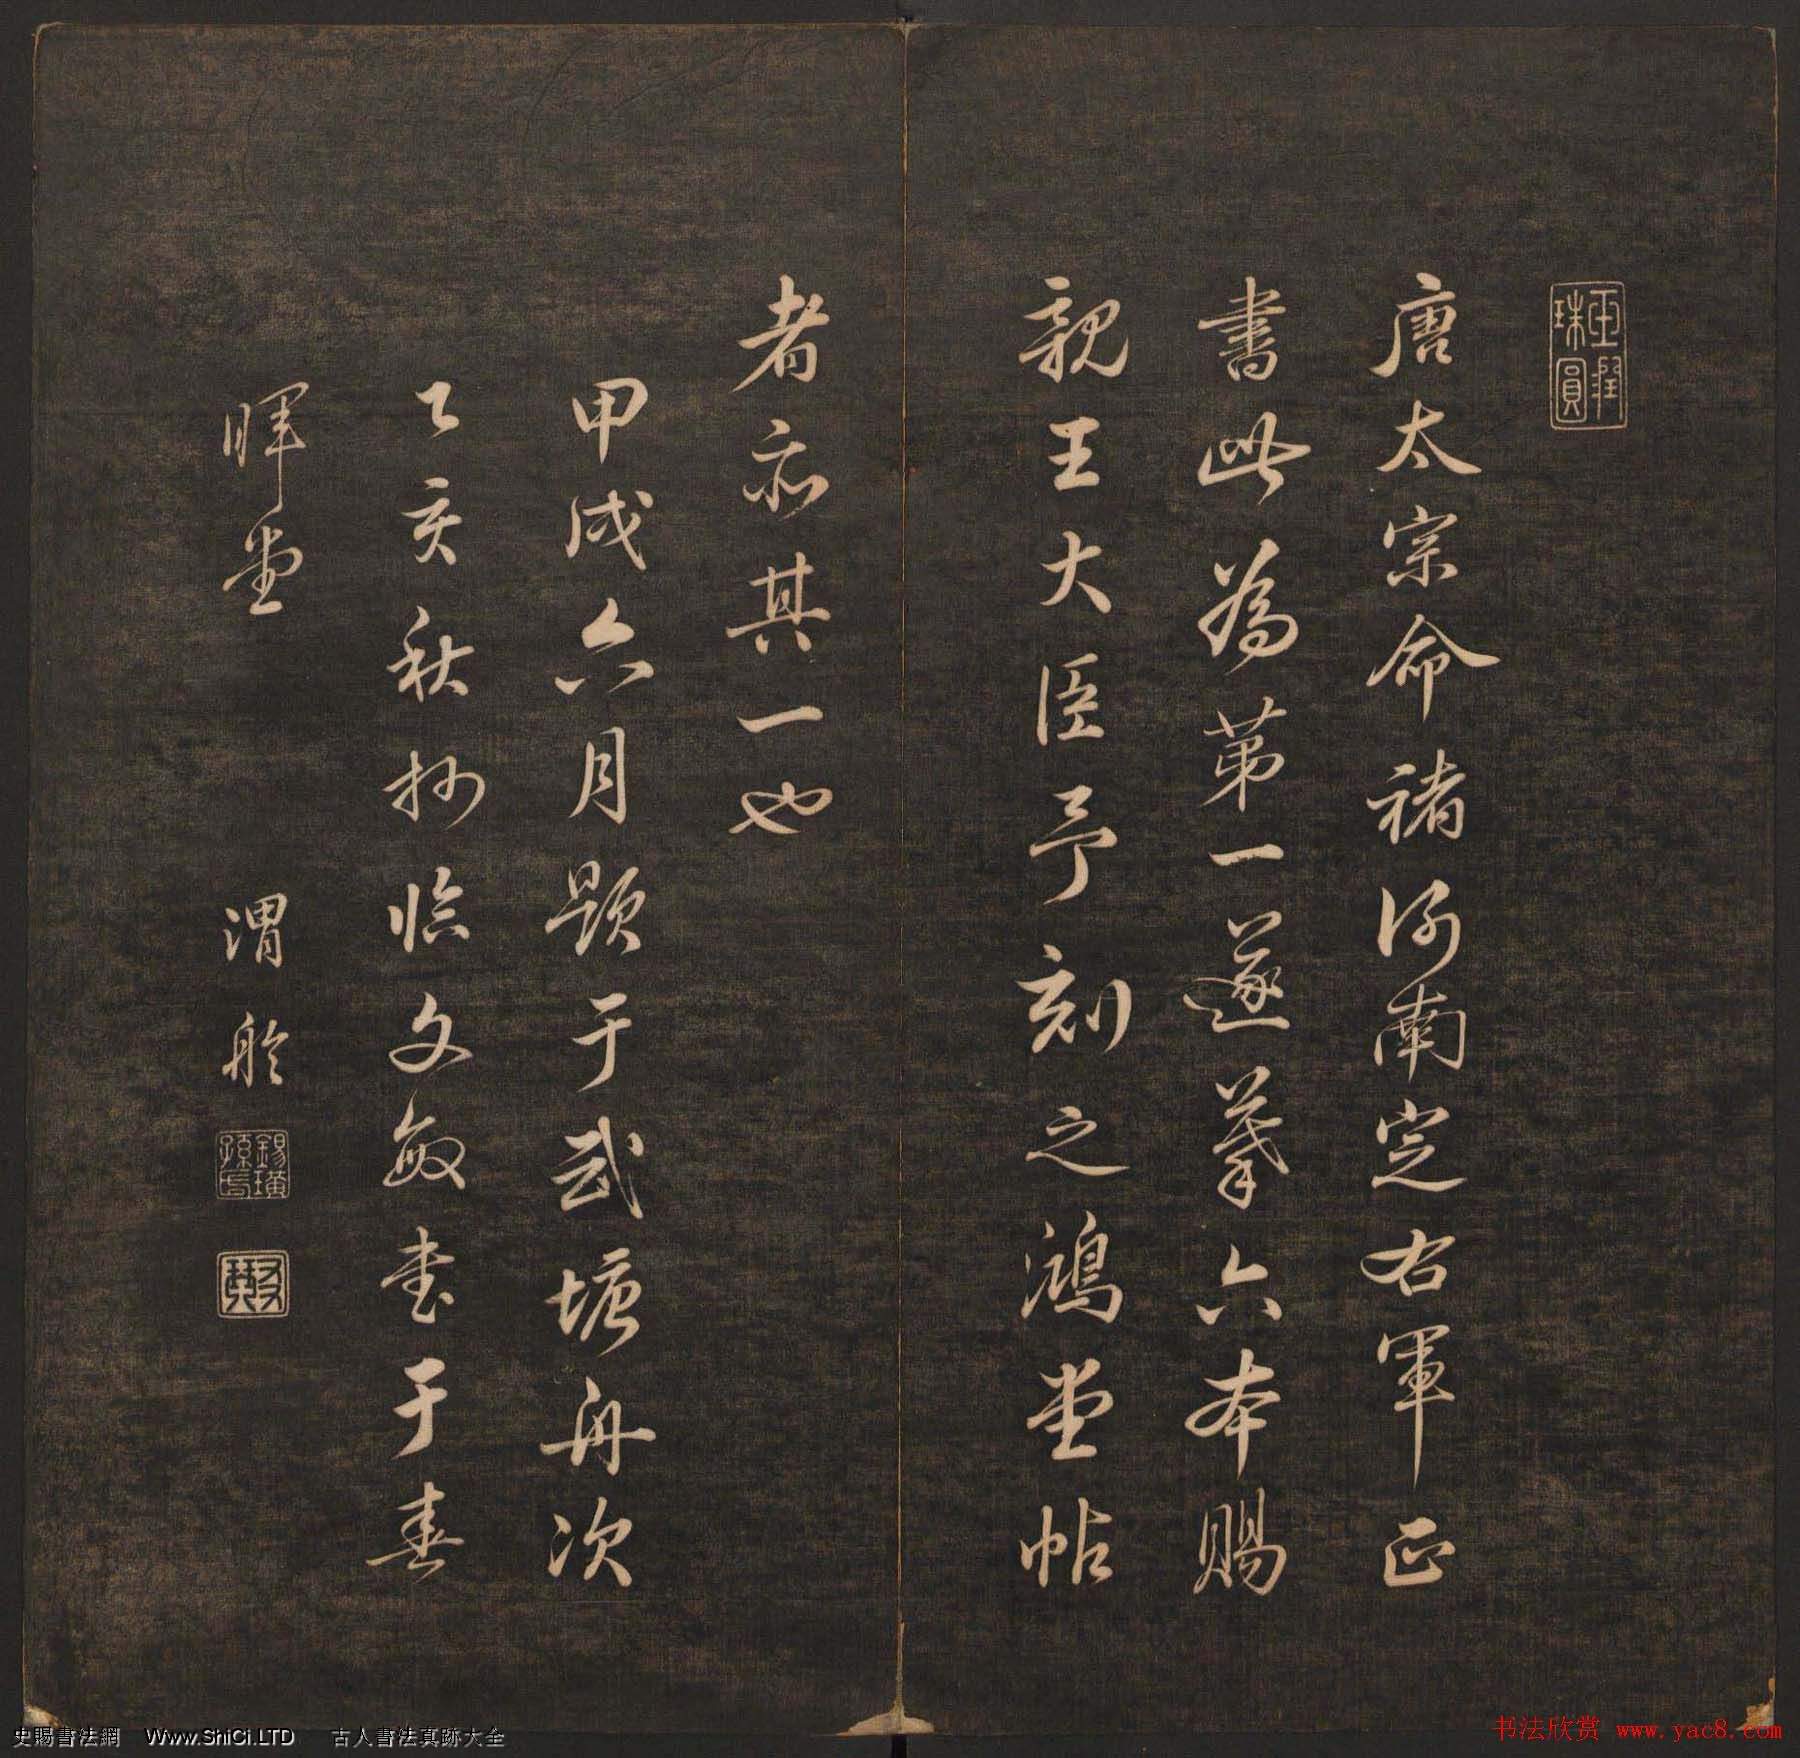 玉潤珠圓
唐太宗命褚河南定右軍正
書此為第一遂摹六本賜
親王大臣予刻之鴻堂帖
者亦其一也
甲戌六月題于武塘舟次
乙亥秋抄臨文敏書于春
暉堂 渭舲
錫璜
史賜書法網 Www.ShiCi.LTD 古人書法真跡大全
书法欣赏 www.yac8.com